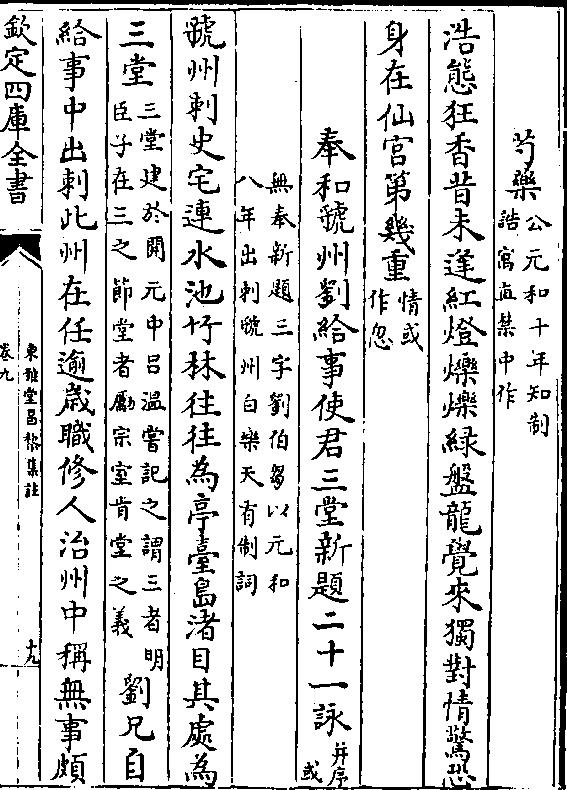 芍藥公元和十年知制
誥寓直禁中作
浩態狂香昔未逢紅燈爍爍緑盤龍覺來獨對情驚恐
身在仙宮第幾重情或
作忽
奉和虢州劉給事使君三堂新題二十一詠并序
或
無奉新題三字劉伯芻以元和
八年出刺虢州白樂天有制詞
虢州刺史宅連水池竹林往往為亭臺島渚目其處為
三堂三堂建於開元中吕温嘗記之謂三者明
臣子在三之節堂者勵宗室肯堂之義劉兄自
給事中出刺此州在任逾歲職修人治州中稱無事頗
欽定四庫全書
東雅堂昌黎集註
卷九
十九